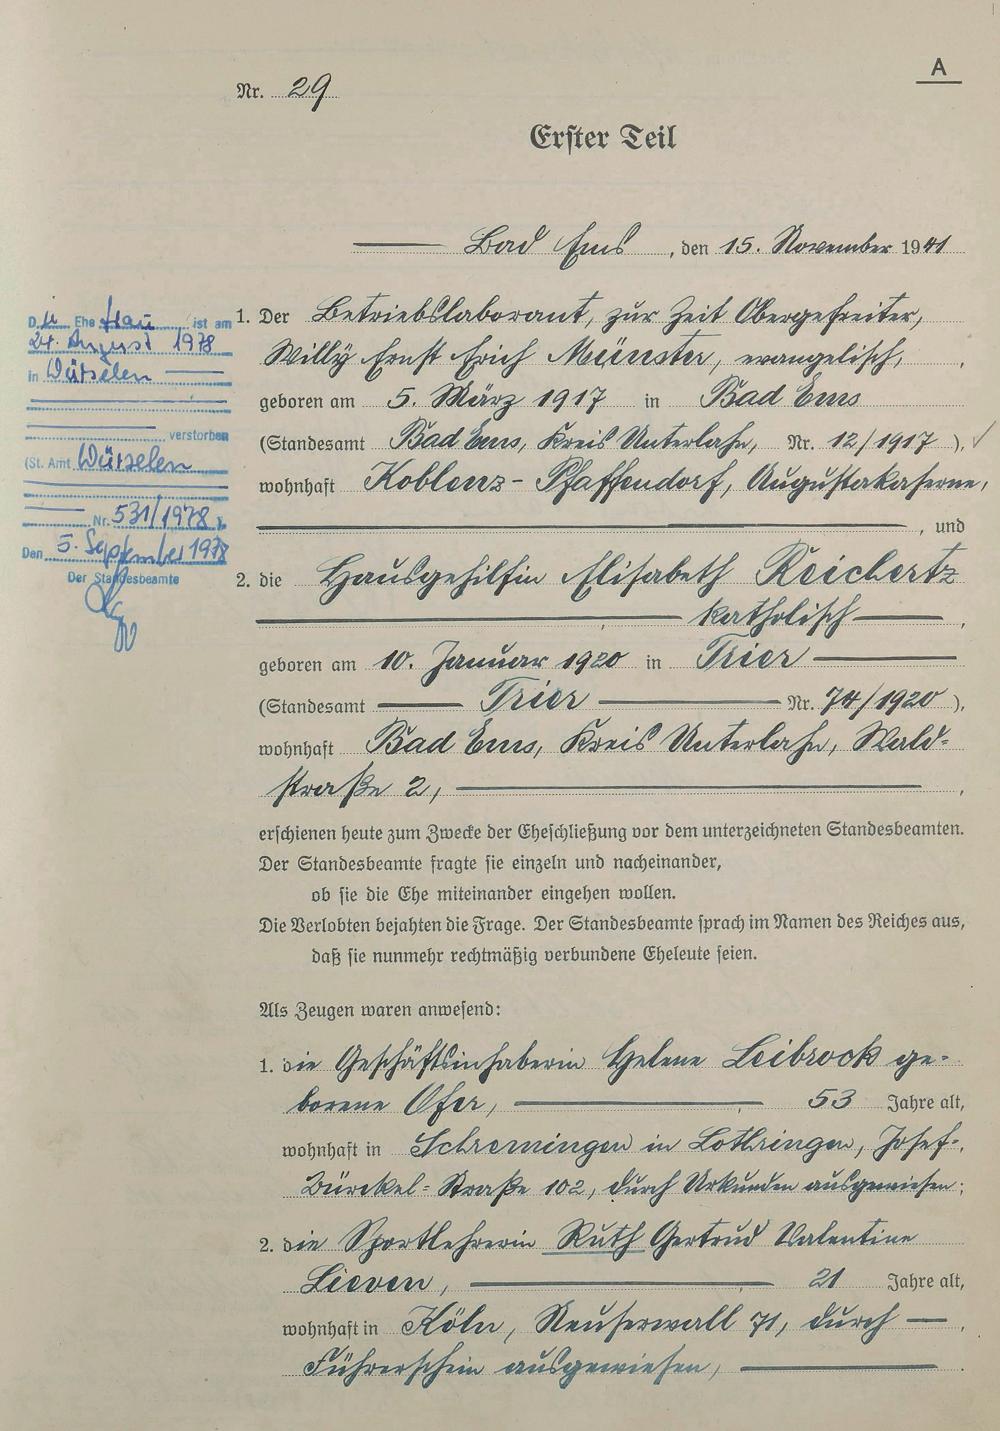 A
Nr. 29
Erster Teil
Bad Ems, den 15. November 1941
1. Der Betriebslaborant, zur Zeit Obergefreiter,
Willy Ernst Erich Münster, evangelisch,
geboren am 5. März 1917 in Bad Ems
(Standesamt Bad Ems, Kreis Unterlahn, Nr. 12/1917),
wohnhaft Koblenz-Pfaffendorf, Augustakaserne,
, und
2. die Hausgehilfin Elisabeth Reichertz
katholisch,
geboren am 10. Januar 1920 in Trier
(Standesamt Trier Nr. 74/1920),
wohnhaft Bad Ems, Kreis Unterlahn, Wald-
straße 2,
erschienen heute zum Zwecke der Eheschließung vor dem unterzeichneten Standesbeamten.
Der Standesbeamte fragte sie einzeln und nacheinander,
ob sie die Ehe miteinander eingehen wollen.
Die Verlobten bejahten die Frage. Der Standesbeamte sprach im Namen des Reiches aus,
daß sie nunmehr rechtmäßig verbundene Eheleute seien.
Als Zeugen waren anwesend:
1. die Geschäftsinhaberin Helene Leibrock ge-
borene Ofer, 53 Jahre alt,
wohnhaft in Schremingen in Lothringen, Josef-
Bürckel-Straße 102, durch Urkunden ausgewiesen;
2. die Sportlehrerin Ruth Gertrud Valentine
Lieven, 21 Jahre alt,
wohnhaft in Köln, Neuserwall 71, durch
Führerschein ausgewiesen,
Die Ehefrau ist am
24. August 1978
in Würselen
verstorben
(St. Amt Würselen
Nr. 531/1978).
Den 5. September 1978
Der Standesbeamte